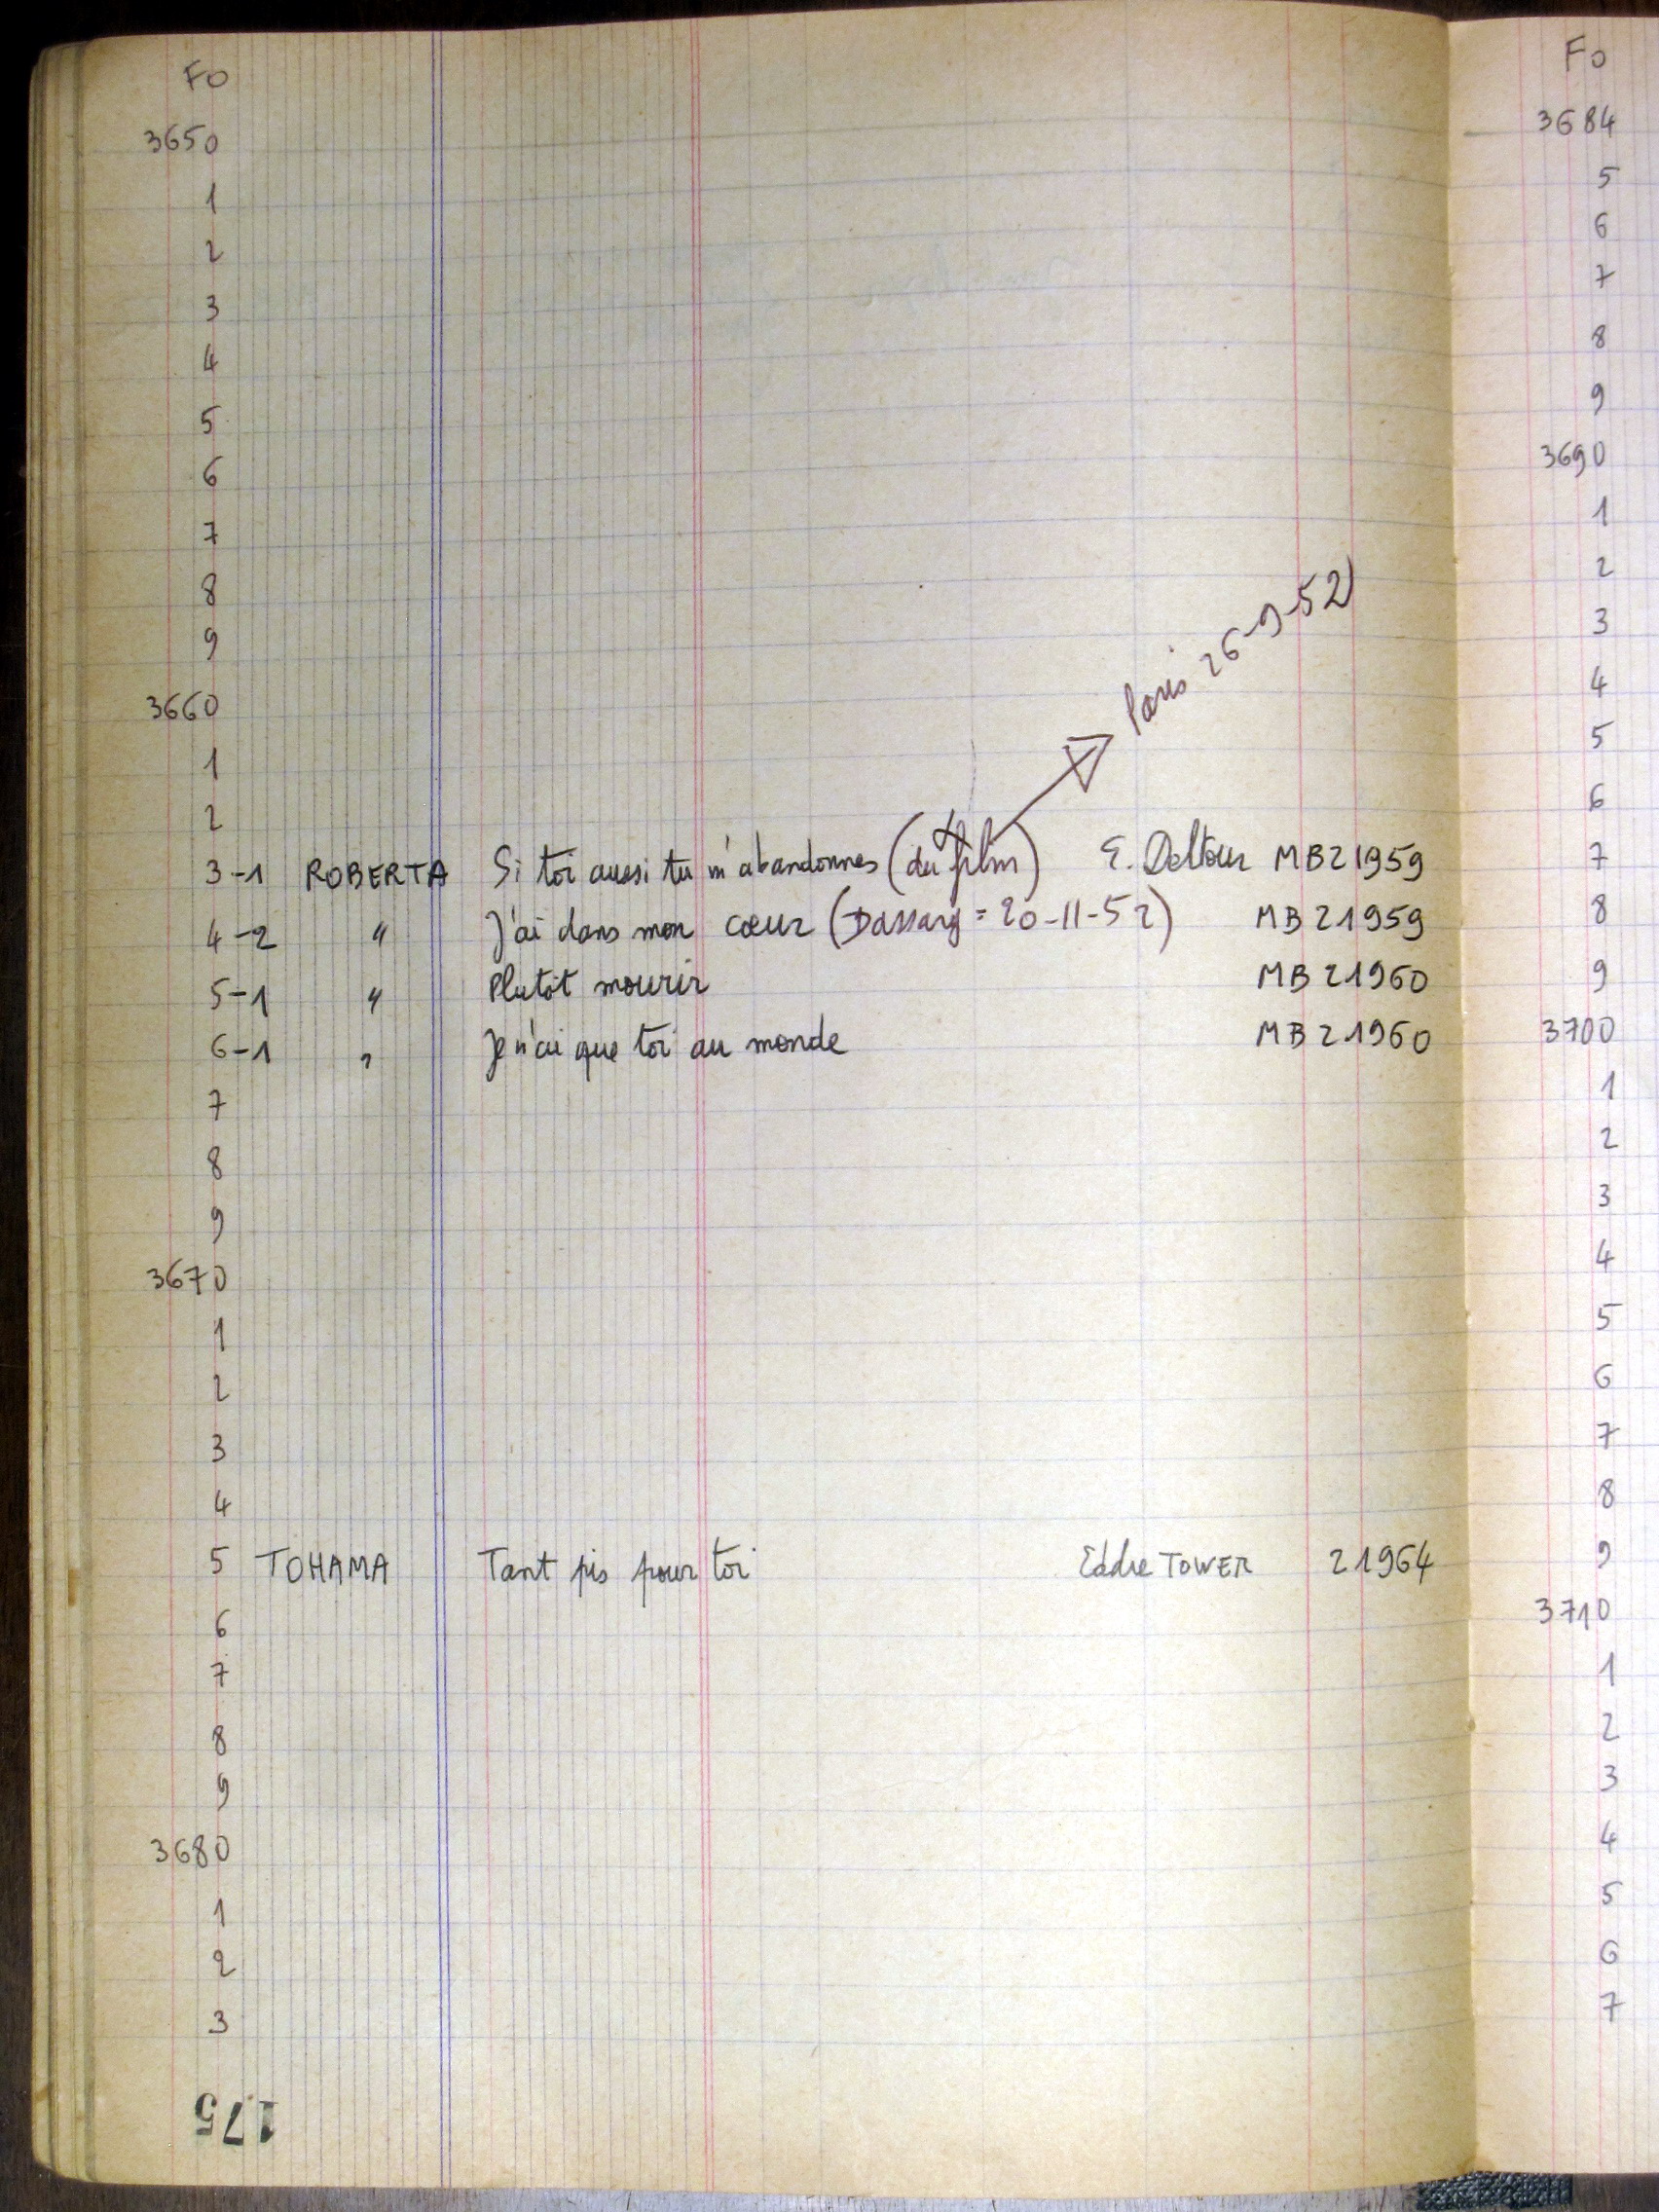 Fo
3650
1
2
3
4
5
6
7
8
9
3660
1
2
Paris 26-9-52)
3-1 ROBERTA Si toi aussi tu m'abandonnes (du film) E. Deltour MB21959
4-2 " J'ai dans mon cœur (Dassary = 20-11-52) MB 21959
5-1 " Plutôt mourir MB 21960
6-1 " Je n'ai que toi au monde MB 21960
7
8
9
3670
1
2
3
4
5 TOHAMA Tant pis pour toi Eddie TOWER 21964
6
7
8
9
3680
1
2
3
175
Fo
3684
5
6
7
8
9
3690
1
2
3
4
5
6
7
8
9
3700
1
2
3
4
5
6
7
8
9
3710
1
2
3
4
5
6
7